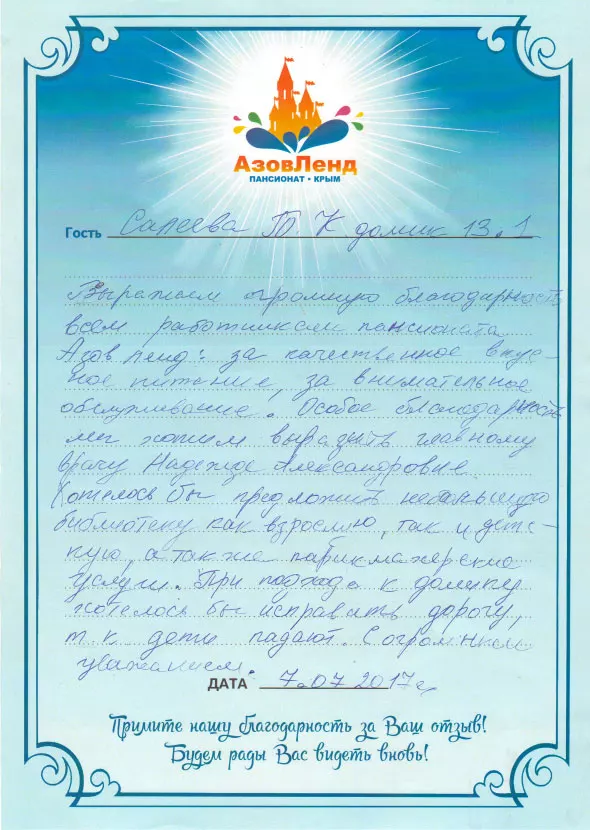 АзовЛенд
ПАНСИОНАТ • КРЫМ
Гость Сапеева Т. К домик 13.1
Выражаем огромную благодарность
всем работникам пансионата
Азов Ленд: за качественное вкус-
ное питание, за внимательное
обслуживание. Особое благодарность
мы хотим выразить главному
врачу Надежде Александровне
Хотелось бы предложить небольшую
библиотеку как взрослую, так и детс-
кую, а также парикмахерские
услуги. При подходе к домику
хотелось бы исправить дорогу,
т.к дети падают. С огромным
уважением.
ДАТА 7.07 2017г
Примите нашу благодарность за Ваш отзыв!
Будем рады Вас видеть вновь!